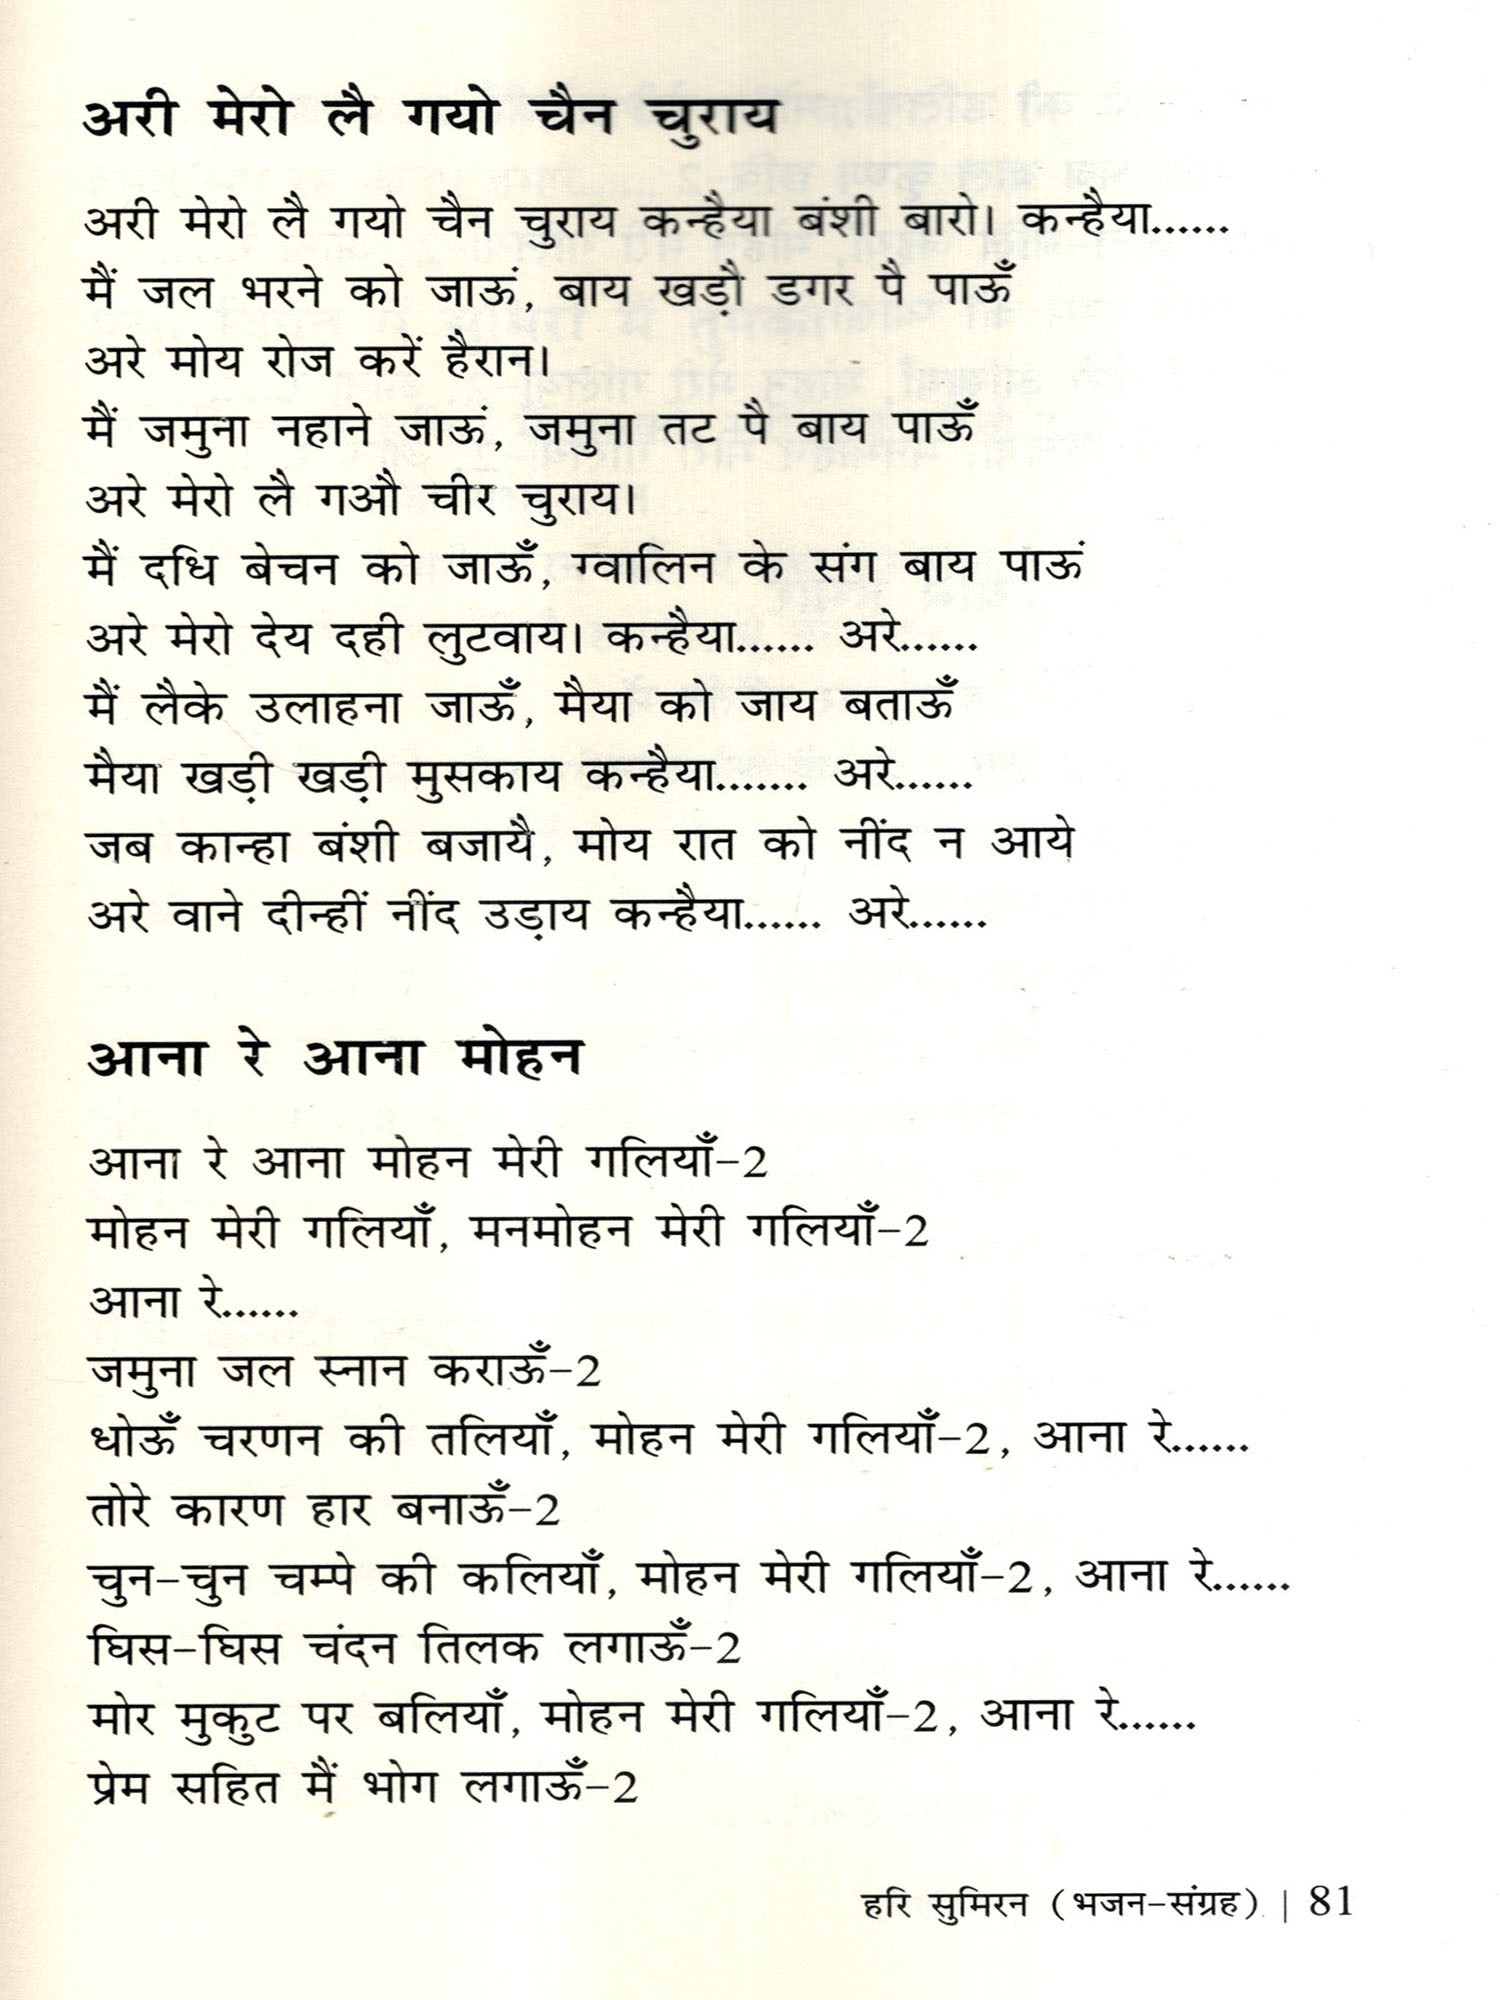 अरी मेरो लै गयो चैन चुराय
अरी मेरो लै गयो चैन चुराय कन्हैया बंशी बारो। कन्हैया......
मैं जल भरने को जाऊं, बाय खड़ौ डगर पै पाऊँ
अरे मोय रोज करें हैरान।
मैं जमुना नहाने जाऊं, जमुना तट पै बाय पाऊँ
अरे मेरो लै गऔ चीर चुराय।
मैं दधि बेचन को जाऊँ, ग्वालिन के संग बाय पाऊं
अरे मेरो देय दही लुटवाय। कन्हैया...... अरे......
मैं लैके उलाहना जाऊँ, मैया को जाय बताऊँ
मैया खड़ी खड़ी मुसकाय कन्हैया....... अरे......
जब कान्हा बंशी बजायै, मोय रात को नींद न आये
अरे वाने दीन्हीं नींद उड़ाय कन्हैया...... अरे......
आना रे आना मोहन
आना रे आना मोहन मेरी गलियाँ-2
मोहन मेरी गलियाँ, मनमोहन मेरी गलियाँ-2
आना रे......
जमुना जल स्नान कराऊँ-2
धोऊँ चरणन की तलियाँ, मोहन मेरी गलियाँ-2, आना रे......
तोरे कारण हार बनाऊँ-2
चुन-चुन चम्पे की कलियाँ, मोहन मेरी गलियाँ-2, आना रे......
घिस-घिस चंदन तिलक लगाऊँ-2
मोर मुकुट पर बलियाँ, मोहन मेरी गलियाँ-2, आना रे......
प्रेम सहित मैं भोग लगाऊँ-2
हरि सुमिरन (भजन-संग्रह) | 81